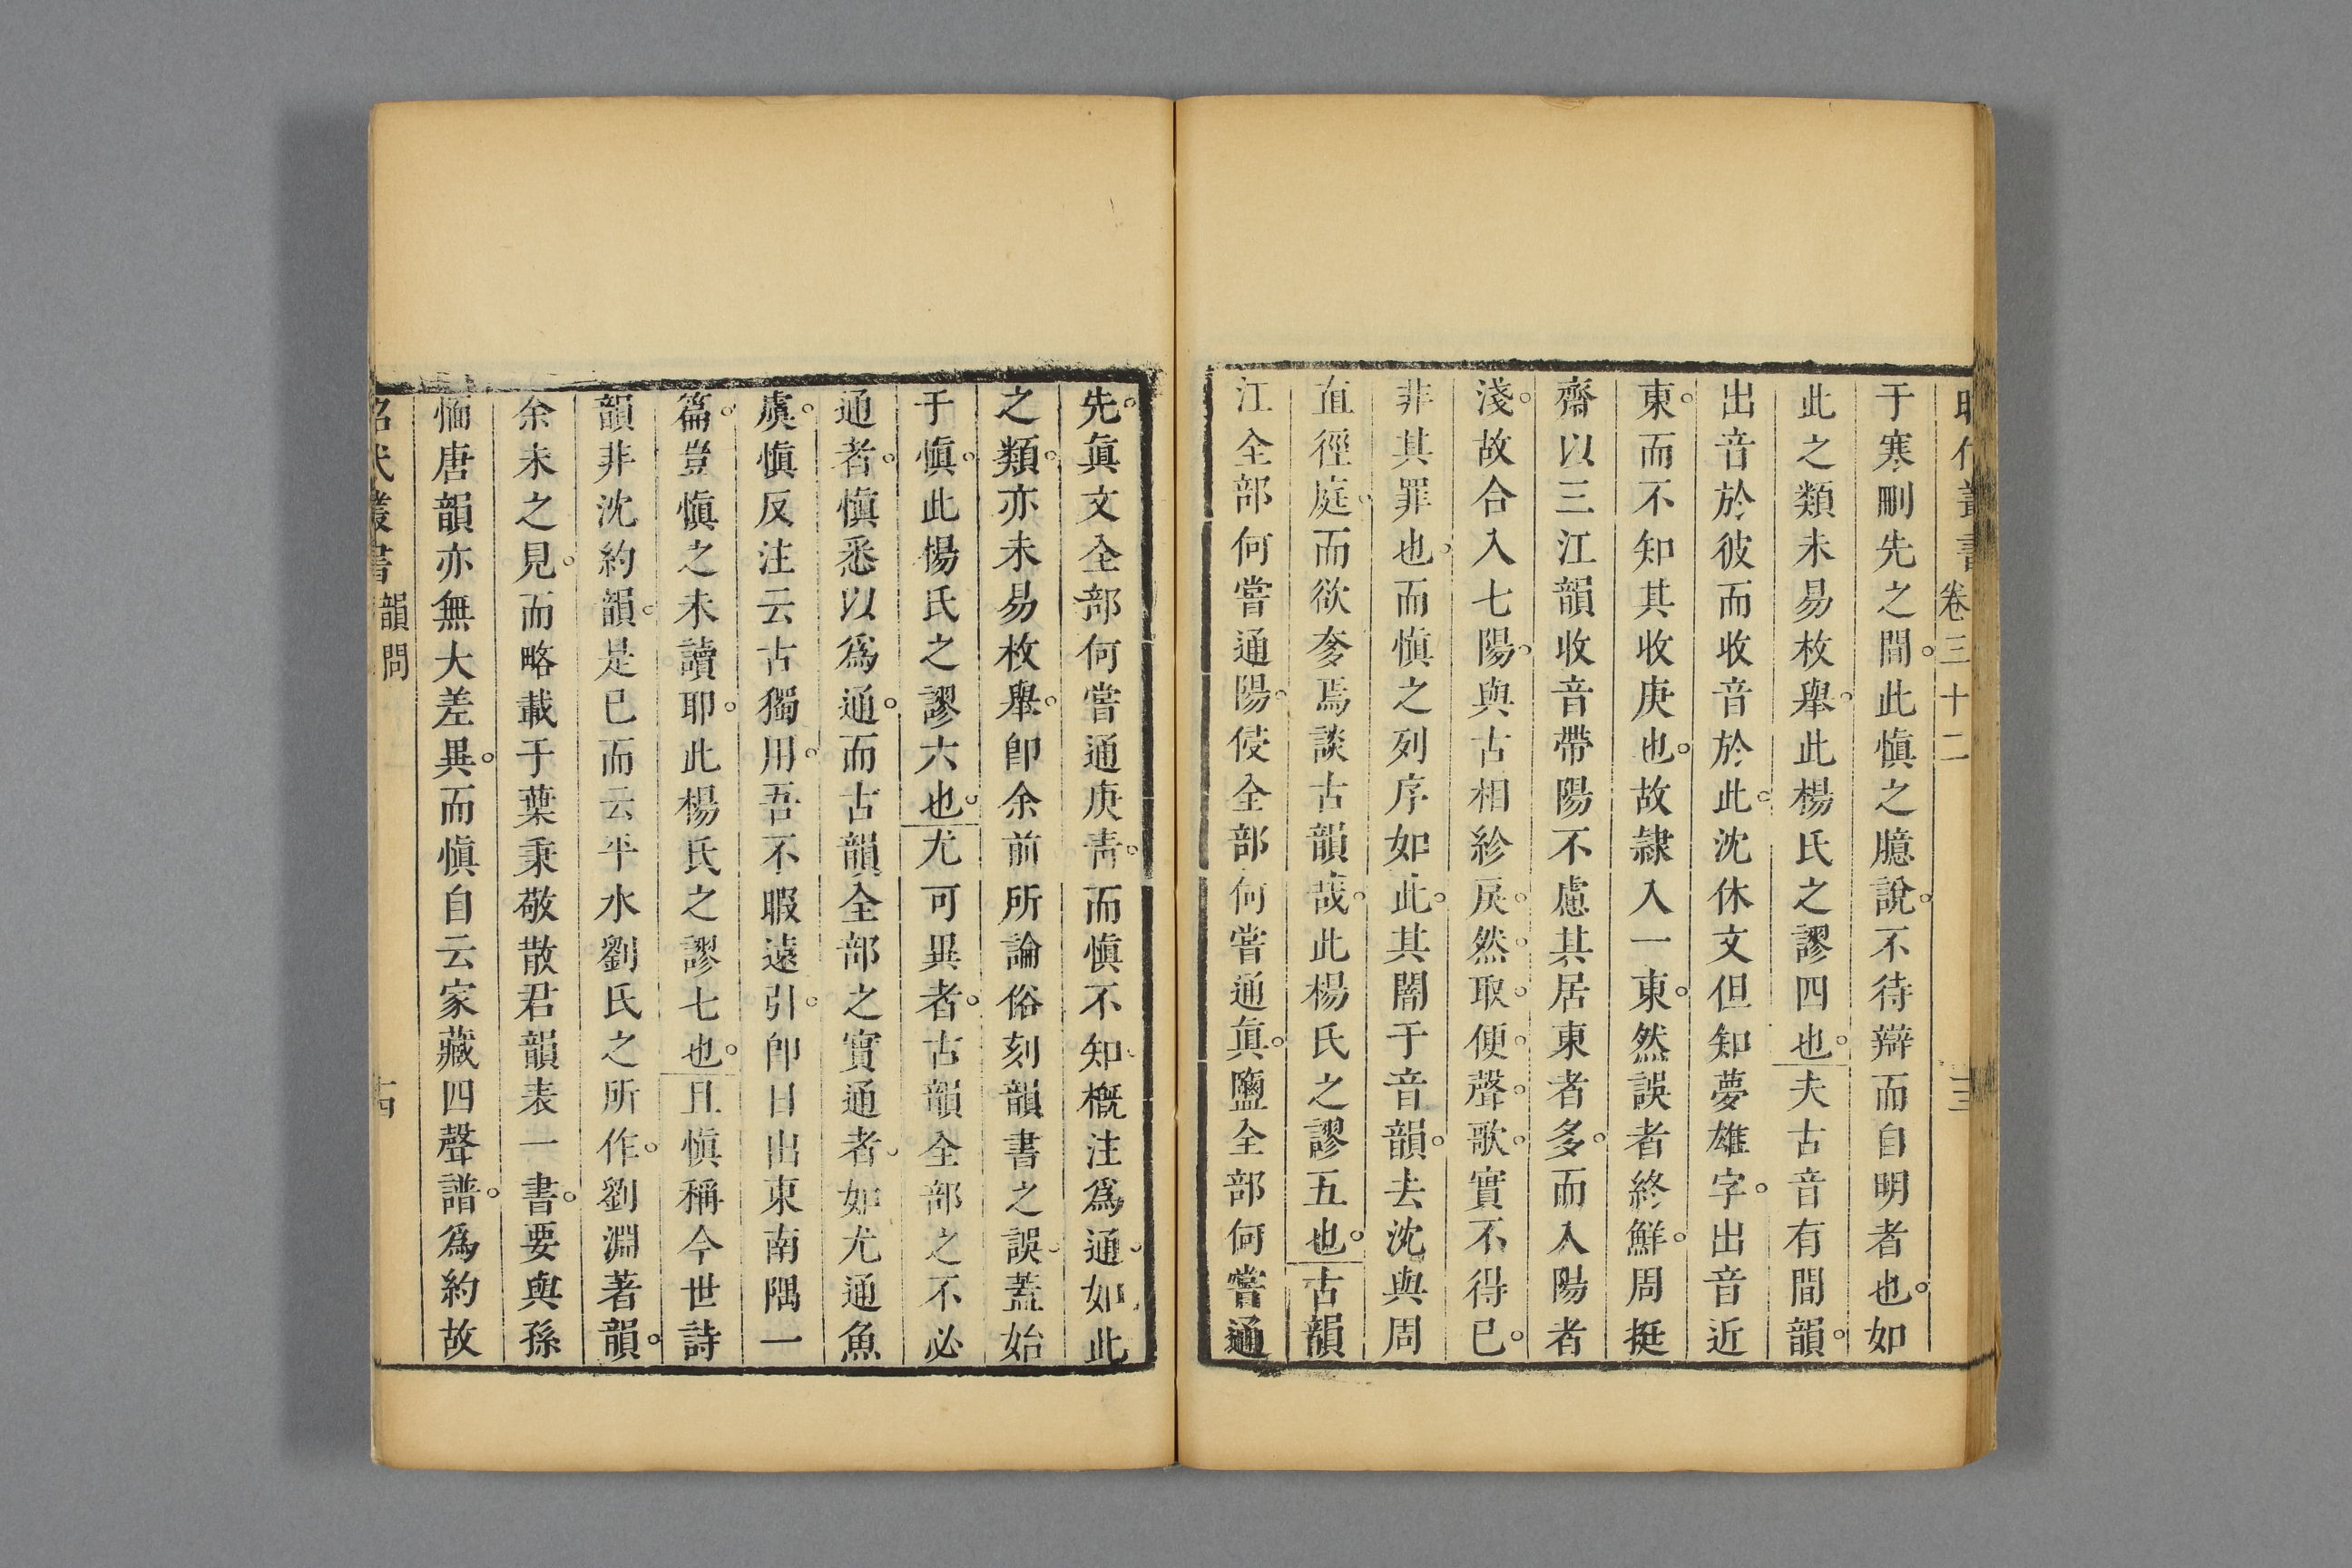 昭代叢書 卷三十二 三
于寒刪先之間此愼之臆說不待辯而自明者也如
此之類未易枚舉此楊氏之謬四也夫古音有間韻
出音於彼而收音於此沈休文但知夢雄字出音近
東而不知其收庚也故隷入一東然誤者終鮮周挺
齋以三江韻收音帶陽不慮其居東者多而入陽者
淺故合入七陽與古相紾戾然取便聲歌實不得已
非其罪也而愼之列序如此其闇于音韻去沈與周
直徑庭而欲奓焉談古韻哉此楊氏之謬五也古韻
江全部何嘗通陽侵全部何嘗通眞鹽全部何嘗通
先眞文全部何嘗通庚靑而愼不知槪注爲通如此
之類亦未易枚舉卽余前所論俗刻韻書之誤蓋始
于愼此楊氏之謬六也尤可異者古韻全部之不必
通者愼悉以爲通而古韻全部之實通者如尤通魚
虞愼反注云古獨用吾不暇遠引卽日出東南隅一
篇豈愼之未讀耶此楊氏之謬七也且愼稱今世詩
韻非沈約韻是已而云平水劉氏之所作劉淵著韻
余未之見而略載于葉秉敬散君韻表一書要與孫
愐唐韻亦無大差異而愼自云家藏四聲譜爲約故
昭代叢書 韻問 十四